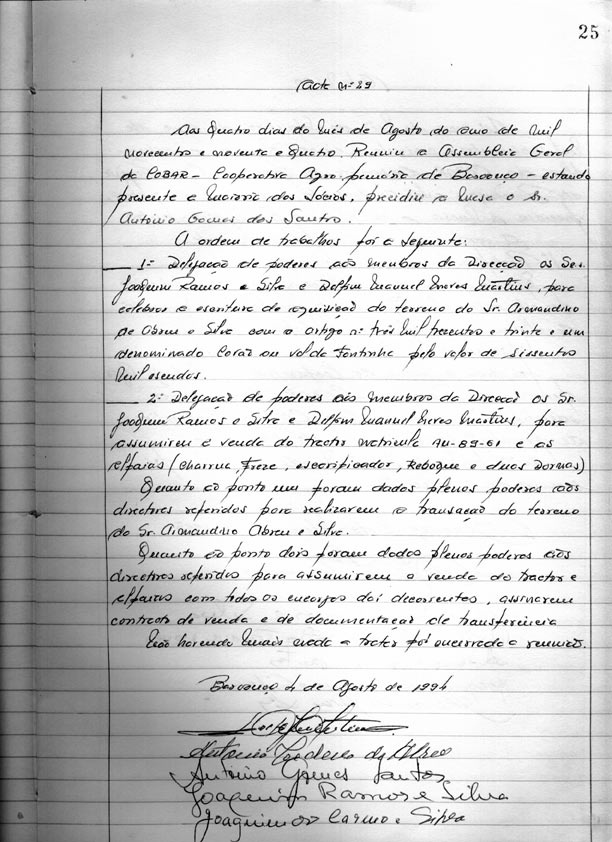 25
Acta nº 29
Aos Quatro dias do Mês de Agosto do ano de Mil
novecentos e noventa e Quatro. Reuniu a Assembleia Geral
da COBAR - Cooperativa Agro pecuária de Barcouço - estando
presente a Maioria dos Sócios, presidiu a Mesa o Sr.
António Gomes dos Santos.
A ordem de trabalhos foi a seguinte:
1º Delegação de poderes aos membros da Direcção os Srs.
Joaquim Ramos e Silva e Delfim Manuel Neves Martins, para
celebrar a escritura de aquisição do terreno do Sr. Armandino
de Abreu e Silva com o artigo nº três Mil trezentos e trinta e um
denominado ou val da Fontinha pelo valor de
Mil escudos.
2º Delegação de poderes aos membros da Direcção os Sr.
Joaquim Ramos e Silva e Delfim Manuel Neves Martins, para
assumirem a venda do tractor matricula -89-61 e as
alfaias (charrua, Freze, escarificador, Reboque e duas Dornas)
Quanto ao ponto um foram dados plenos poderes aos
directores referidos para realizarem a transação do terreno
do Sr. Armandino Abreu e Silva.
Quanto ao ponto dois foram dados plenos poderes aos
directores referidos para assumirem a venda do tractor e
alfaias com todos os encargos daí decorrentes, assinarem
contrato de venda e de documentação de transferência
Não havendo Mais nada a tratar foi encerrada a reunião.
Barcouço 4 de Agosto de 1994
António
António Gomes Santos
Joaquim Ramos e Silva
Joaquim do Carmo e Silva